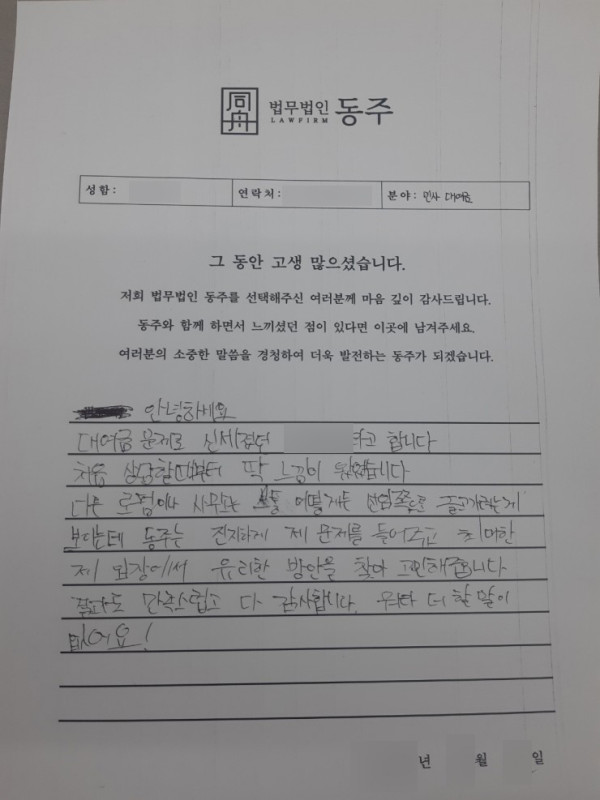 同舟 법무법인 동주
LAWFIRM
성함: 연락처: 분야: 민사 대여금
그 동안 고생 많으셨습니다.
저희 법무법인 동주를 선택해주신 여러분께 마음 깊이 감사드립니다.
동주와 함께 하면서 느끼셨던 점이 있다면 이곳에 남겨주세요.
여러분의 소중한 말씀을 경청하여 더욱 발전하는 동주가 되겠습니다.
안녕하세요
대여금 문제로 신세졌던 라고 합니다
처음 상담할때부터 딱 느낌이 왔었습니다
다른 로펌이나 사무소는 보통 어떻게든 선임쪽으로 끌고가려는게
보이는데 동주는 진지하게 제 문제를 들어주고 최대한
제 입장에서 유리한 방안을 찾아 고민해줍니다
결과도 만족스럽고 다 감사합니다. 더 할 말이
없어요!
년 월 일